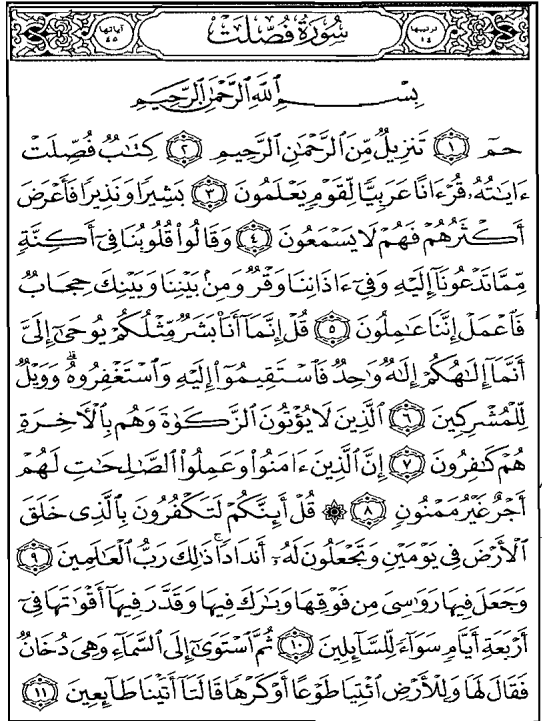 ترتيبها ٤١ سُورَةُ فُصِّلَتْ آياتها ٥٤
بِسْمِ ٱللَّهِ ٱلرَّحْمَٰنِ ٱلرَّحِيمِ
حمٓ ۝١ تَنزِيلٌ مِّنَ ٱلرَّحْمَٰنِ ٱلرَّحِيمِ ۝٢ كِتَٰبٌ فُصِّلَتْ
ءَايَٰتُهُۥ قُرْءَانًا عَرَبِيًّا لِّقَوْمٍ يَعْلَمُونَ ۝٣ بَشِيرًا وَنَذِيرًا فَأَعْرَضَ
أَكْثَرُهُمْ فَهُمْ لَا يَسْمَعُونَ ۝٤ وَقَالُوا۟ قُلُوبُنَا فِىٓ أَكِنَّةٍ
مِّمَّا تَدْعُونَآ إِلَيْهِ وَفِىٓ ءَاذَانِنَا وَقْرٌ وَمِنۢ بَيْنِنَا وَبَيْنِكَ حِجَابٌ
فَٱعْمَلْ إِنَّنَا عَٰمِلُونَ ۝٥ قُلْ إِنَّمَآ أَنَا۠ بَشَرٌ مِّثْلُكُمْ يُوحَىٰٓ إِلَىَّ
أَنَّمَآ إِلَٰهُكُمْ إِلَٰهٌ وَٰحِدٌ فَٱسْتَقِيمُوٓا۟ إِلَيْهِ وَٱسْتَغْفِرُوهُ ۗ وَوَيْلٌ
لِّلْمُشْرِكِينَ ۝٦ ٱلَّذِينَ لَا يُؤْتُونَ ٱلزَّكَوٰةَ وَهُم بِٱلْأَخِرَةِ
هُمْ كَٰفِرُونَ ۝٧ إِنَّ ٱلَّذِينَ ءَامَنُوا۟ وَعَمِلُوا۟ ٱلصَّٰلِحَٰتِ لَهُمْ
أَجْرٌ غَيْرُ مَمْنُونٍ ۝٨ ۞ قُلْ أَئِنَّكُمْ لَتَكْفُرُونَ بِٱلَّذِى خَلَقَ
ٱلْأَرْضَ فِى يَوْمَيْنِ وَتَجْعَلُونَ لَهُۥٓ أَندَادًا ۚ ذَٰلِكَ رَبُّ ٱلْعَٰلَمِينَ ۝٩
وَجَعَلَ فِيهَا رَوَٰسِىَ مِن فَوْقِهَا وَبَٰرَكَ فِيهَا وَقَدَّرَ فِيهَآ أَقْوَٰتَهَا فِىٓ
أَرْبَعَةِ أَيَّامٍ سَوَآءً لِّلسَّآئِلِينَ ۝١٠ ثُمَّ ٱسْتَوَىٰٓ إِلَى ٱلسَّمَآءِ وَهِىَ دُخَانٌ
فَقَالَ لَهَا وَلِلْأَرْضِ ٱئْتِيَا طَوْعًا أَوْ كَرْهًا قَالَتَآ أَتَيْنَا طَآئِعِينَ ۝١١